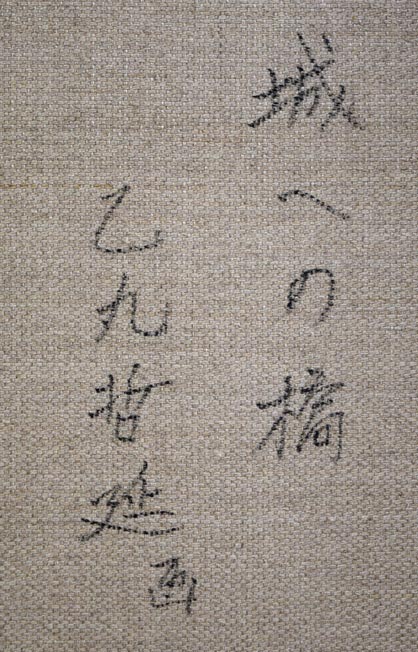 城への橋
乙丸哲延画